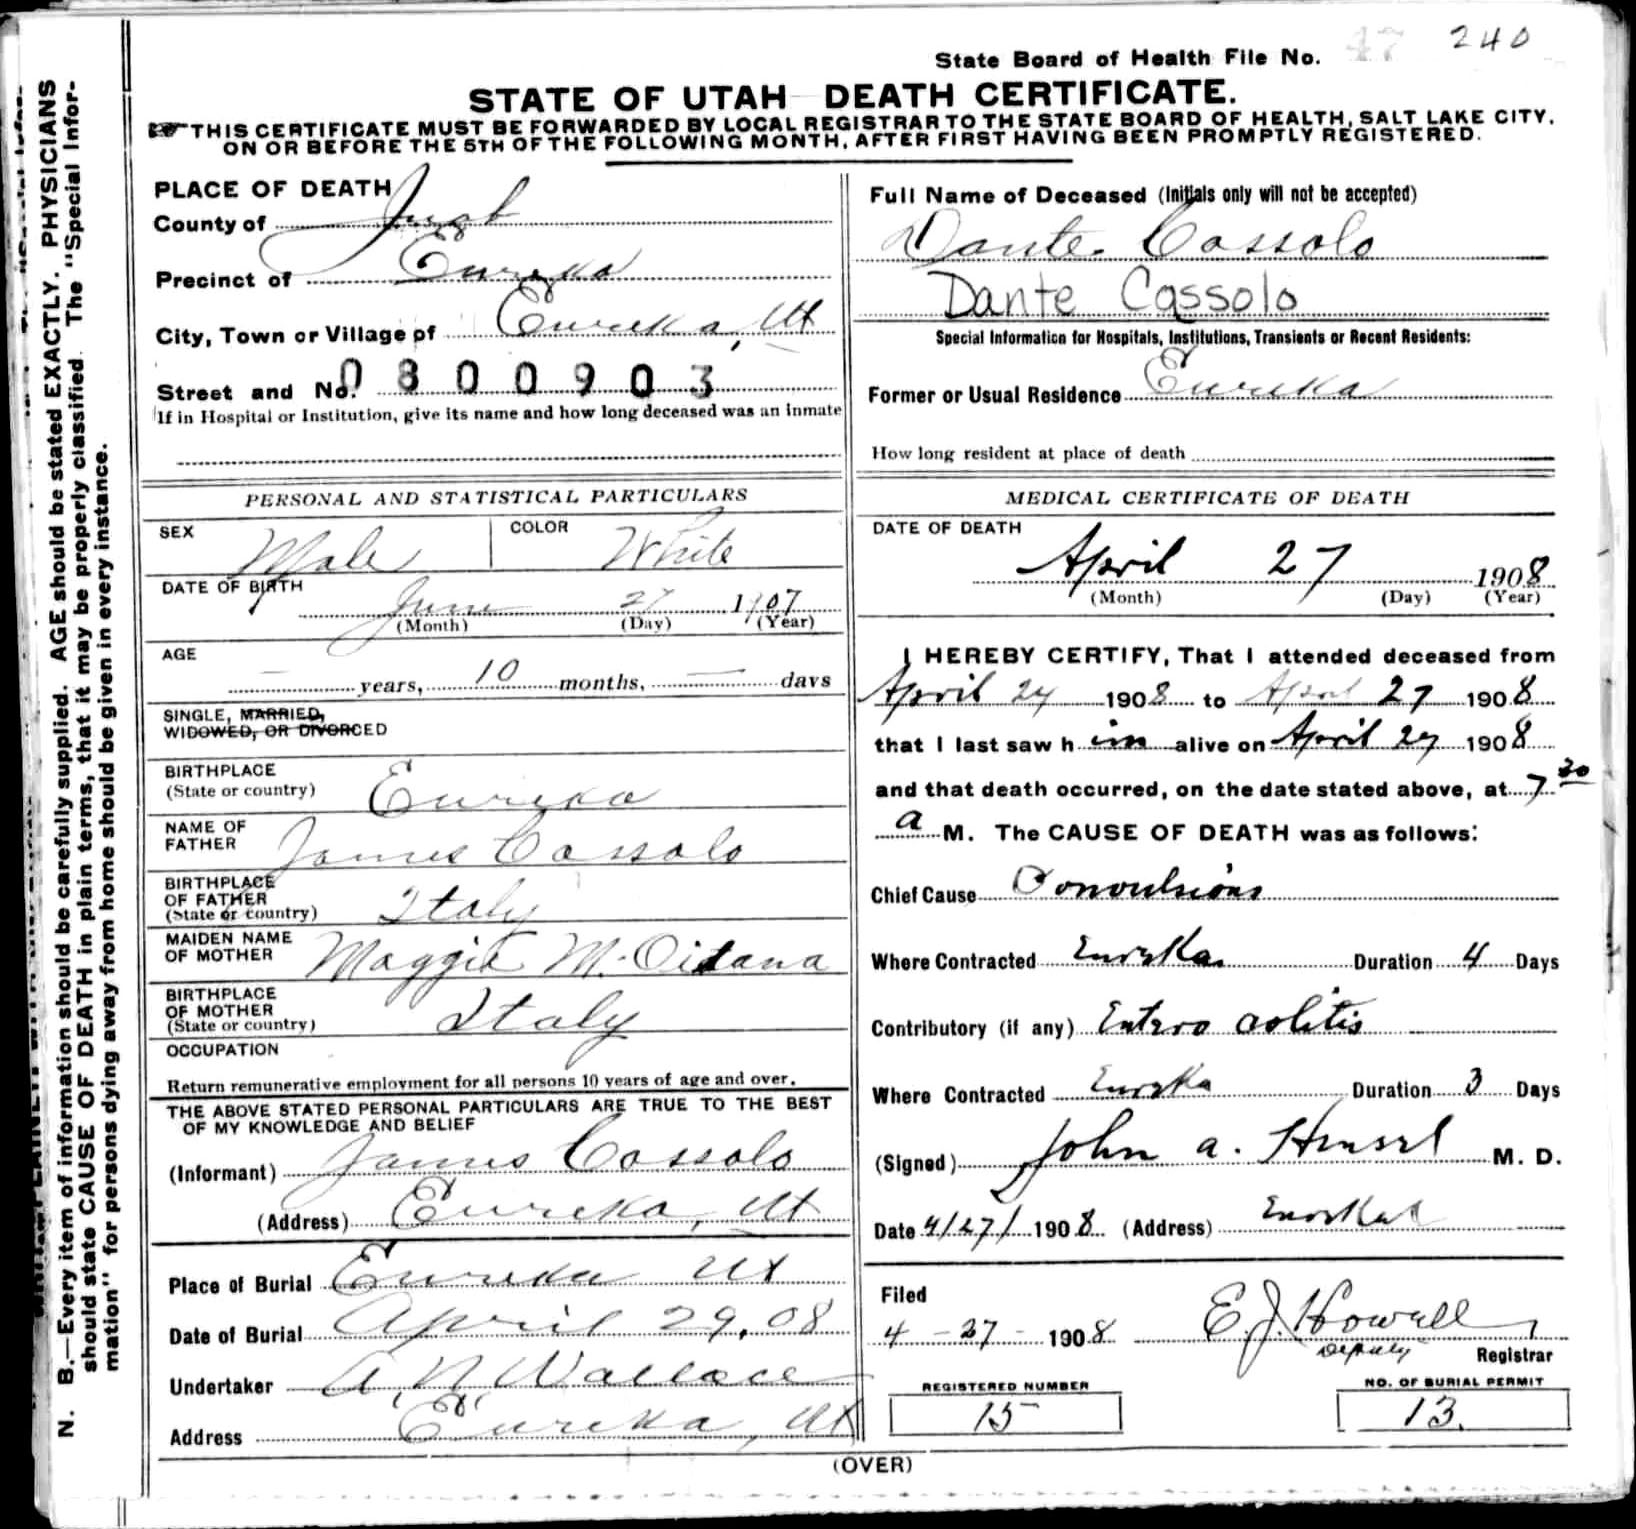 State Board of Health File No. 47 240
STATE OF UTAH DEATH CERTIFICATE.
THIS CERTIFICATE MUST BE FORWARDED BY LOCAL REGISTRAR TO THE STATE BOARD OF HEALTH, SALT LAKE CITY,
ON OR BEFORE THE 5TH OF THE FOLLOWING MONTH, AFTER FIRST HAVING BEEN PROMPTLY REGISTERED.
N. B.—Every item of information should be carefully supplied. AGE should be stated EXACTLY. PHYSICIANS
should state CAUSE OF DEATH in plain terms, that it may be properly classified. The "Special Infor-
mation" for persons dying away from home should be given in every instance.
PLACE OF DEATH
County of Juab
Precinct of Eureka
City, Town or Village of Eureka, Ut
Street and No. 0800903
If in Hospital or Institution, give its name and how long deceased was an inmate
PERSONAL AND STATISTICAL PARTICULARS
SEX Male COLOR White
DATE OF BIRTH
June 27 1907
(Month) (Day) (Year)
AGE
— years, 10 months, — days
SINGLE, MARRIED,
WIDOWED, OR DIVORCED
BIRTHPLACE
(State or country) Eureka
NAME OF
FATHER James Cassolo
BIRTHPLACE
OF FATHER
(State or country) Italy
MAIDEN NAME
OF MOTHER Maggie M. Oitana
BIRTHPLACE
OF MOTHER
(State or country) Italy
OCCUPATION
Return remunerative employment for all persons 10 years of age and over.
THE ABOVE STATED PERSONAL PARTICULARS ARE TRUE TO THE BEST
OF MY KNOWLEDGE AND BELIEF
(Informant) James Cassolo
(Address) Eureka, Ut
Place of Burial Eureka Ut
Date of Burial April 29, 08
Undertaker A. N. Wallace
Address Eureka, Ut
Full Name of Deceased (Initials only will not be accepted)
Dante Cassolo
Dante Cassolo
Special Information for Hospitals, Institutions, Transients or Recent Residents:
Former or Usual Residence Eureka
How long resident at place of death
MEDICAL CERTIFICATE OF DEATH
DATE OF DEATH
April 27 1908
(Month) (Day) (Year)
I HEREBY CERTIFY, That I attended deceased from
April 24 1908 to April 27 1908
that I last saw h im alive on April 27 1908
and that death occurred, on the date stated above, at 7 30
a M. The CAUSE OF DEATH was as follows:
Chief Cause Convulsions
Where Contracted Eureka Duration 4 Days
Contributory (if any) Entero colitis
Where Contracted Eureka Duration 3 Days
(Signed) John A. Hensel M. D.
Date 4/27/ 1908 (Address) Eureka
Filed
4-27- 1908 E. J. Howell
Deputy Registrar
REGISTERED NUMBER
15
NO. OF BURIAL PERMIT
13.
(OVER)